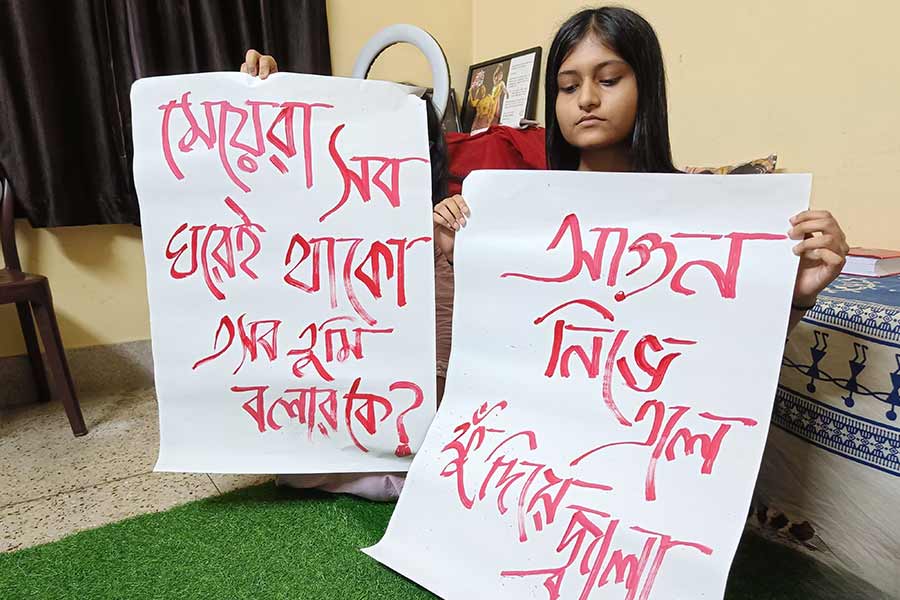 মেয়েরা
সব
ঘরেই থাকো
এসব তুমি
বলার কে?
আগুন
নিভে
এলে
ফুঁ দিয়ে
জ্বালা